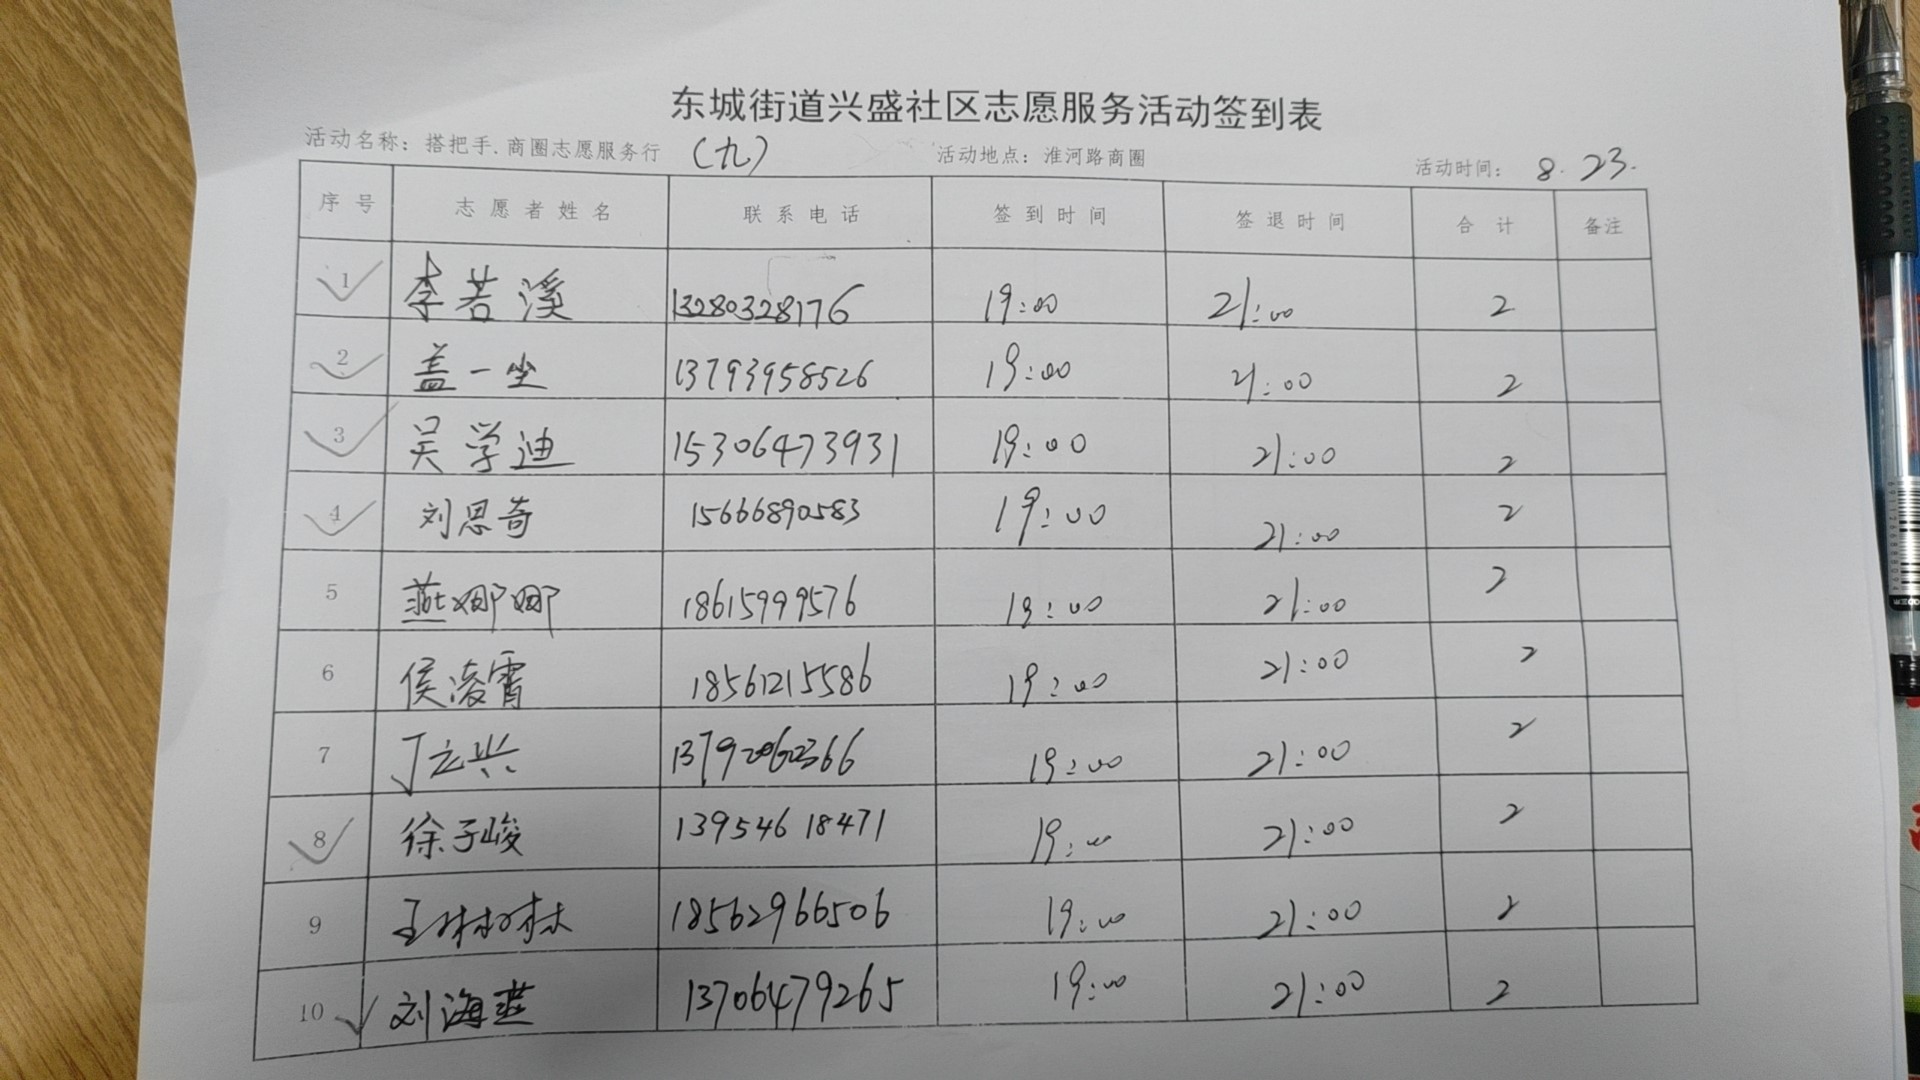 东城街道兴盛社区志愿服务活动签到表
活动名称：搭把手.商圈志愿服务行 （九） 活动地点：淮河路商圈 活动时间：8.23.
序号 志愿者姓名 联系电话 签到时间 签退时间 合计 备注
1 李若溪 13280328176 19:00 21:00 2
2 盖一坐 13793958526 19:00 21:00 2
3 吴学迪 15306473931 19:00 21:00 2
4 刘思奇 15666890583 19:00 21:00 2
5 燕娜娜 18615999576 19:00 21:00 2
6 侯凌霄 18561215586 19:00 21:00 2
7 丁立兴 19:00 21:00 2
8 徐子峻 13954618471 19:00 21:00 2
9 王林林 18562966506 19:00 21:00 2
10 刘海燕 13706479265 19:00 21:00 2